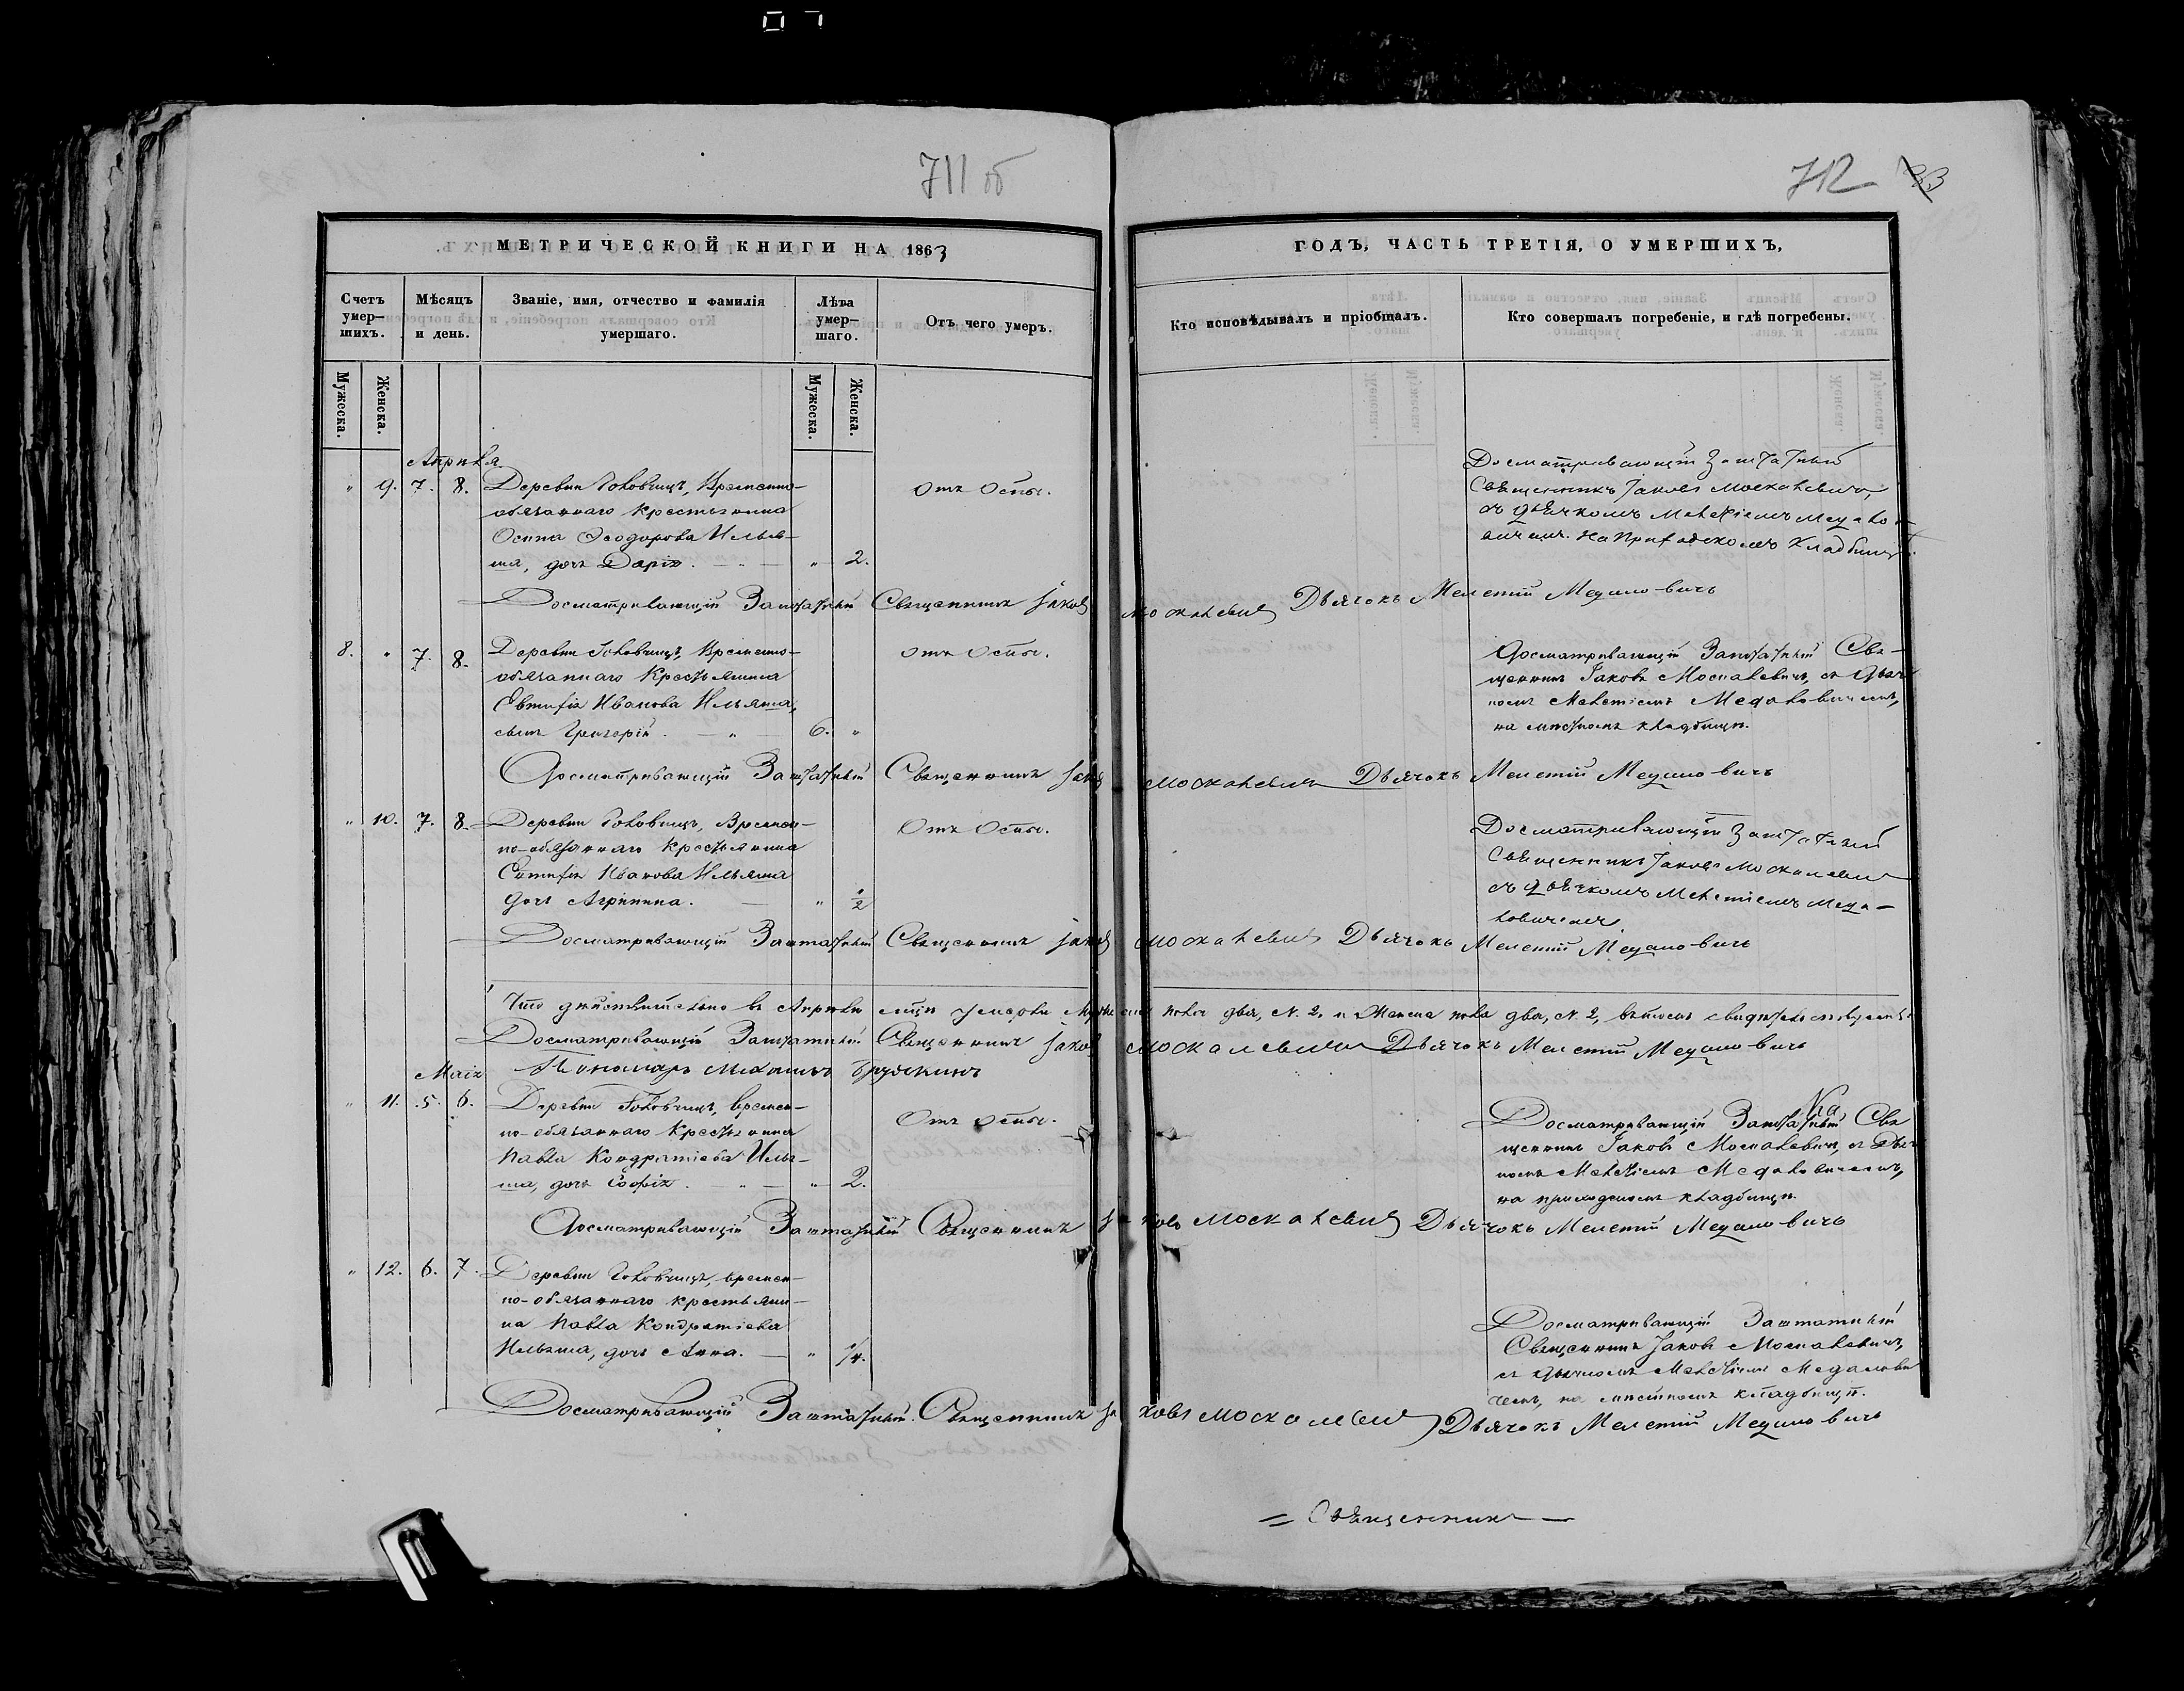 711 об
712 33
МЕТРИЧЕСКОЙ КНИГИ НА 1863
ГОДЪ, ЧАСТЬ ТРЕТІЯ, О УМЕРШИХЪ,
Счетъ умер-
шихъ.
Мѣсяцъ
и день.
Званіе, имя, отчество и фамилія
умершаго.
Лѣта
умер-
шаго.
Отъ чего умеръ.
Кто исповѣдывалъ и пріобщалъ.
Кто совершалъ погребеніе, и гдѣ погребены.
Мужеска.
Женска.
Мужеска.
Женска.
Апрѣля
" 9. 7. 8. Деревни Головчицъ, Временно-
обязаннаго Крестьянина
Осипа Ѳеодорова Илья-
ша, дочь Дарія. — " — " 2.
Отъ Оспы.
Досматривающій Заштатный
Священникъ Іаковъ Москалевичъ,
съ дьячкомъ Мелетіемъ Медало-
вичемъ. На Приходскомъ Кладбищѣ.
Досматривающій Заштатный Священникъ Іаковъ Москалевичъ Дьячокъ Мелетій Медаловичъ
8. " 7. 8. Деревни Головчицъ, Временно-
обязаннаго Крестьянина
Евтифія Иванова Ильяша,
сынъ Григорій. — " — 6. "
Отъ Оспы.
Досматривающій Заштатный Свя-
щенникъ Іаковъ Москалевичъ, съ Дьяч-
комъ Мелетіемъ Медаловичемъ,
на мѣстномъ кладбищѣ.
Досматривающій Заштатный Священникъ Іаковъ Москалевичъ Дьячокъ Мелетій Медаловичъ
" 10. 7. 8. Деревни Головчицъ, Времен-
но-обязаннаго Крестьянина
Евтифія Иванова Ильяша
дочь Агрипина. — " 1/2
Отъ Оспы.
Досматривающій Заштатный
Священникъ Іаковъ Москалевичъ
съ дьячкомъ Мелетіемъ Меда-
ловичемъ
Досматривающій Заштатный Священникъ Іаковъ Москалевичъ Дьячокъ Мелетій Медаловичъ
Что дѣйствительно въ Апрѣлѣ м͠цѣ умерли Мужеска пола два, N. 2. и Женска пола два, N. 2, въ томъ свидѣтельствуемъ:
Досматривающій Заштатный Священникъ Іаковъ Москалевичъ Дьячокъ Мелетій Медаловичъ
Пономарь
Маія
" 11. 5. 6. Деревни Головчицъ, времен-
но-обязаннаго Крестьянина
Павла Кондратіева Илья-
ша, дочь Софія. — " — " 2.
Отъ оспы.
На
Досматривающій Заштатный Свя
щенникъ Іаковъ Москалевичъ, съ Дьяч
комъ Мелетіемъ Медаловичемъ,
на приходскомъ кладбищѣ.
Досматривающій Заштатный Священникъ Іаковъ Москалевичъ Дьячокъ Мелетій Медаловичъ
" 12. 6. 7. Деревни Головчицъ, времен-
но-обязаннаго крестьяни-
на Павла Кондратіева
Ильяша, дочь Анна. — " 1/4.
Досматривающій Заштатный
Священникъ Іаковъ Москалевичъ,
съ дьячкомъ Мелетіемъ Медалови
чемъ, на мѣстномъ кладбищѣ.
Досматривающій Заштатный Священникъ Іаковъ Москалевичъ Дьячокъ Мелетій Медаловичъ
= Священникъ —